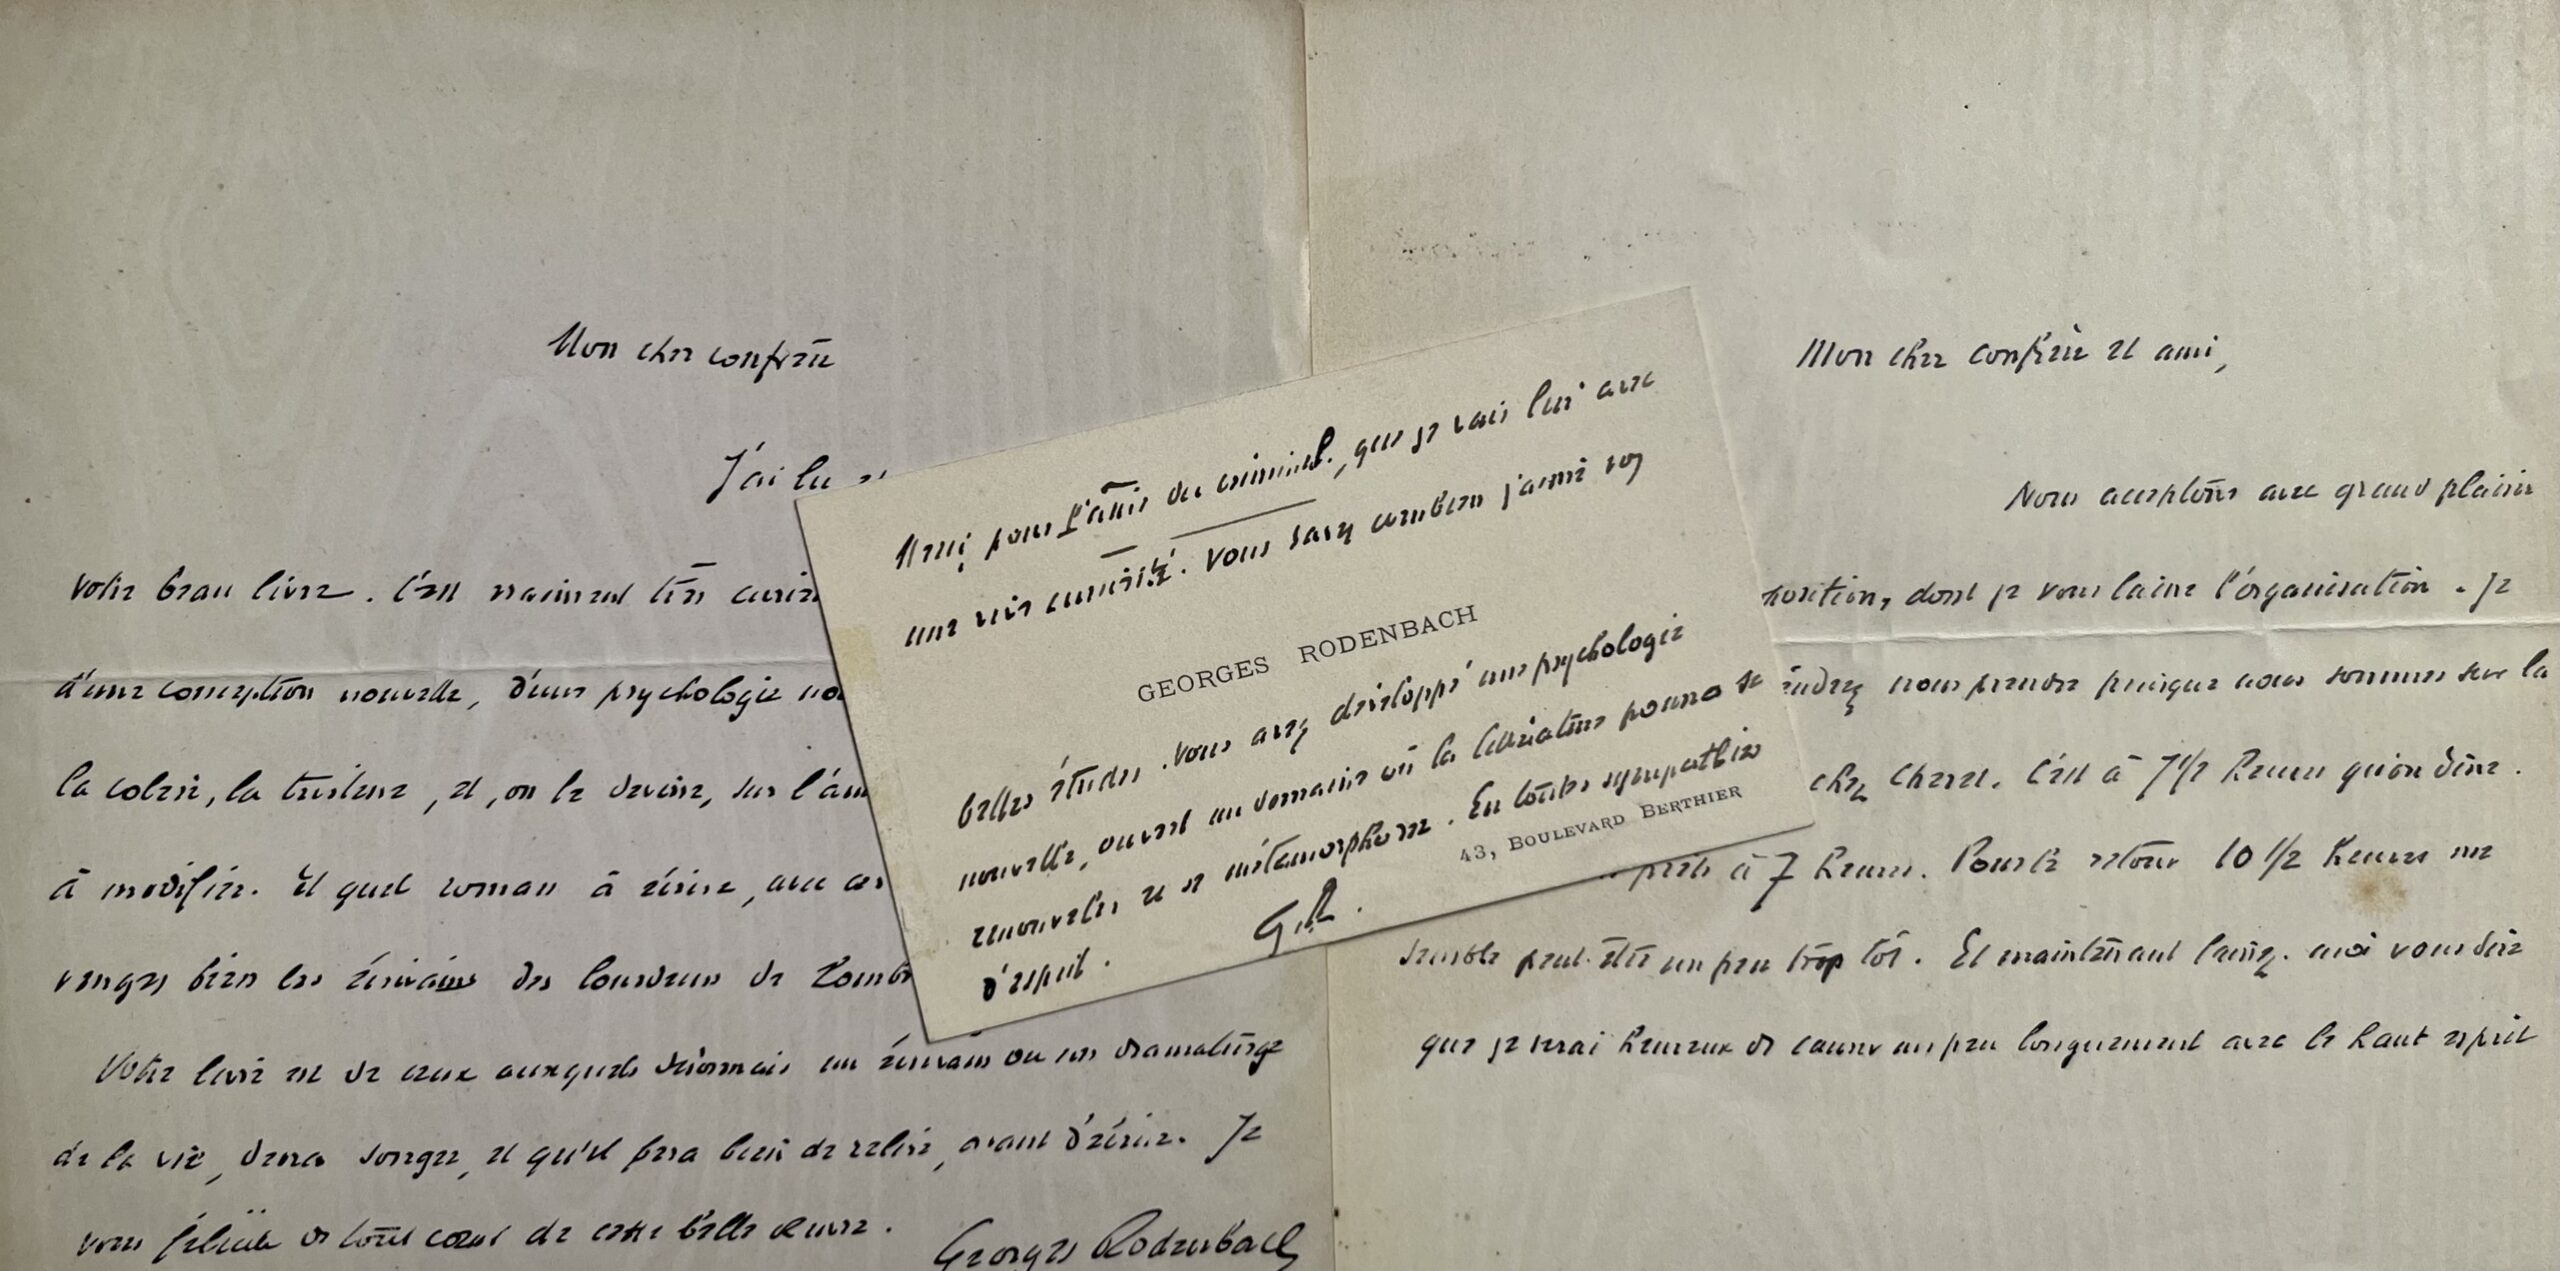 Mon cher confrère
J'ai lu
votre beau livre. C'est vraiment très
d'une conception nouvelle, d'une psychologie
la colère, la tristesse, et, on le devine, sur
à modifier. Et quel roman à écrire, avec
vengez bien les écrivains des lourdeurs de
Votre livre est de ceux auxquels désormais un écrivain ou un dramaturge
de la vie, devra songer, et qu'il fera bien de relire, avant d'écrire. Je
vous félicite de tout cœur de cette belle œuvre.
Georges Rodenbach
Merci pour l'amie du criminel, que je vais lire avec
une vive curiosité. Vous savez combien j'aime vos
GEORGES RODENBACH
belles études. Vous avez développé une psychologie
nouvelle, ouvert un domaine où la littérature pourra se
renouveler et se métamorphoser. En toutes sympathies
d'esprit.
G.R.
43, BOULEVARD BERTHIER
Mon cher confrère et ami,
Nous acceptons avec grand plaisir
dont je vous laisse l'organisation. Je
nous prendre puisque nous sommes sur la
chez Charvet. C'est à 7 1/2 heures qu'on dîne.
prêts à 7 heures. Pour le retour 10 1/2 heures me
semble peut-être un peu trop tôt. Et maintenant laissez-moi vous dire
que je serai heureux de causer un peu longuement avec le haut esprit